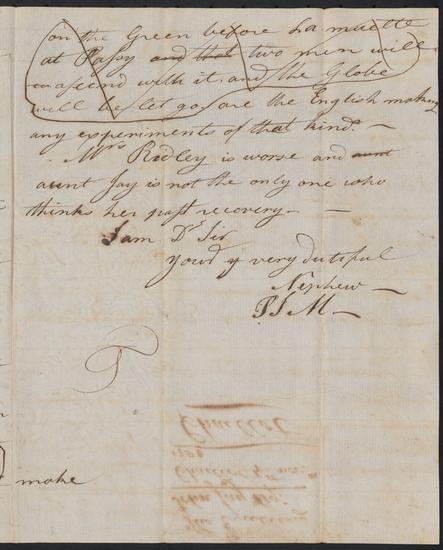 on the Green before La muette
at Passy and that two men will
ascend with it, and the Globe
will be let go, are the English making
any experiments of that kind. —
Mrs Ridley is worse and aunt
aunt Jay is not the only one who
thinks her past recovery. —
I am Dr Sir
your very dutiful
Nephew —
P J M —
make
Chaillot